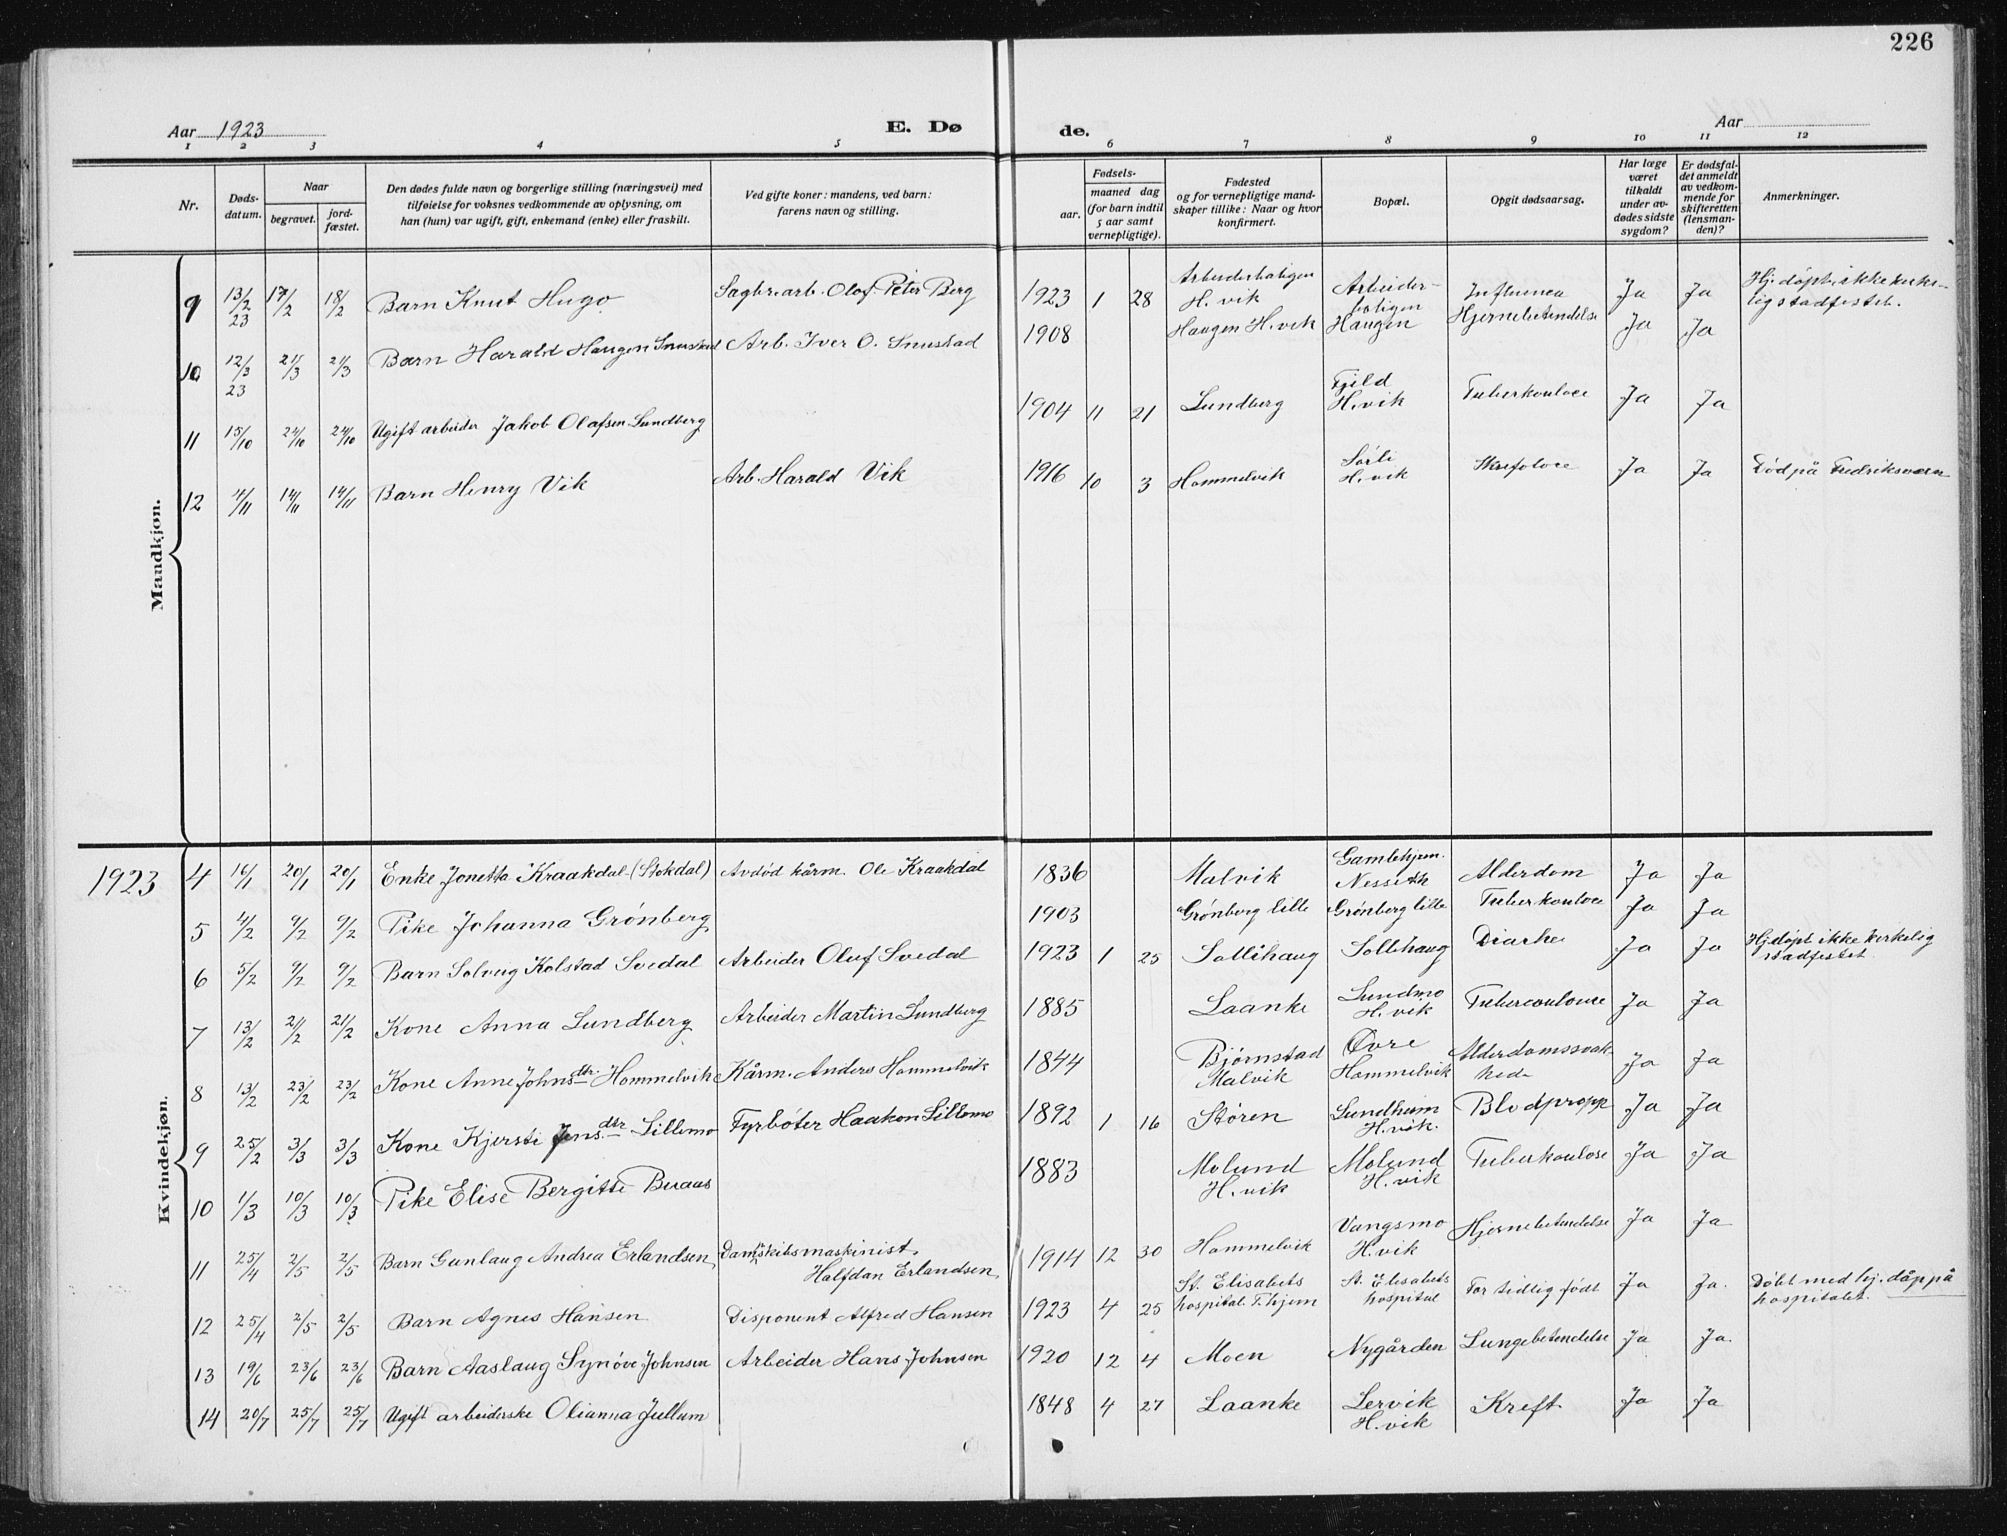 226
Aar 1923
E. Dø
de.
Aar
1 2 3 4 5 6 7 8 9 10 11 12
Nr.
Døds-
datum.
Naar
begravet.
jord-
fæstet.
Den dødes fulde navn og borgerlige stilling (næringsvei) med
tilføielse for voksnes vedkommende av oplysning, om
han (hun) var ugift, gift, enkemand (enke) eller fraskilt.
Ved gifte koner: mandens, ved barn:
farens navn og stilling.
Fødsels-
aar.
maaned dag
(for barn indtil
5 aar samt
vernepligtige).
Fødested
og for vernepligtige mand-
skaper tillike: Naar og hvor
konfirmert.
Bopæl.
Opgit dødsaarsag.
Har læge
været
tilkaldt
under av-
dødes sidste
sygdom?
Er dødsfal-
det anmeldt
av vedkom-
mende for
skifteretten
(lensman-
den)?
Anmerkninger.
Mandkjøn.
9 13/2 23 17/2 18/2 Barn Knut Hugo Sagbr.arb. Olaf Peter Berg 1923 1 28 Arbeiderboligen H.vik Arbeider-boligen Influensa Ja Ja Hj.døpt, ikke kirke-
lig stadfestet.
10 12/3 23 21/3 21/3 Barn Harald Haugen Snustad Arb. Iver O. Snustad 1908 Haugen H.vik Haugen Hjernebetendelse Ja Ja
11 15/10 24/10 24/10 Ugift arbeider Jakob Olafsen Lundberg 1904 11 21 Lundberg Fjeld H.vik Tuberkouloce Ja Ja
12 4/11 14/11 14/11 Barn Henry Vik Arb. Harald Vik 1916 10 3 Hommelvik Sørli H.vik Skrofoloce Ja Ja Død på Fredriksværn
Kvindekjøn.
1923
4 16/1 20/1 20/1 Enke Jonetta Kraakdal (Stokdal) Avdød kårm. Ole Kraakdal 1836 Malvik Gamlehjem. Alderdom Ja Ja
5 4/2 9/2 9/2 Pike Johanna Grønberg 1903 Grønberg lille Grønberg lille Tuberkouloce Ja Ja
6 5/2 9/2 9/2 Barn Solveig Kolstad Svedal Arbeider Oluf Svedal 1923 1 25 Sollihaug Sollihaug Diarhe Ja Ja Hj.døpt ikke kirkelig
stadfestet.
7 13/2 21/2 21/2 Kone Anna Lundberg Arbeider Martin Lundberg 1885 Laanke Lundmo H.vik Tubercoulouce Ja Ja
8 13/2 23/2 23/2 Kone Anne Johnsdtr. Hommelvik Kårm. Anders Hommelvik 1844 Bjørnstad Malvik Øvre Hommelvik Alderdomssvak-
hed Ja Ja
9 25/2 3/3 3/3 Kone Kjersti Jensdtr Lillemo Fyrbøter Haakon Lillemo 1892 1 16 Støren Lundheim H.vik. Blodpropp Ja Ja
10 1/3 10/3 10/3 Pike Elise Bergitte Buaas 1883 Molund H.vik Molund H.vik Tuberkoulose Ja Ja
11 25/4 2/5 2/5 Barn Gunlaug Andrea Erlandsen Dampskibsmaskinist
Halfdan Erlandsen 1914 12 30 Hommelvik Vangsmo H.vik Hjernebetendelse Ja Ja
12 25/4 2/5 2/5 Barn Agnes Hansen Disponent Alfred Hansen 1923 4 25 St. Elisabets hospital T.hjem St. Elisabets hospital For tidlig født Ja Ja. Døbt med hj.dåp på
hospitalet.
13 19/6 23/6 23/6 Barn Aaslaug Synøve Johnsen Arbeider Hans Johnsen 1920 12 4 Moen Nygården Lungebetendelse Ja Ja.
14 20/7 25/7 25/7 Ugift arbeiderske Olianna Jullum 1848 4 27 Laanke Lervik H.vik Kreft Ja Ja